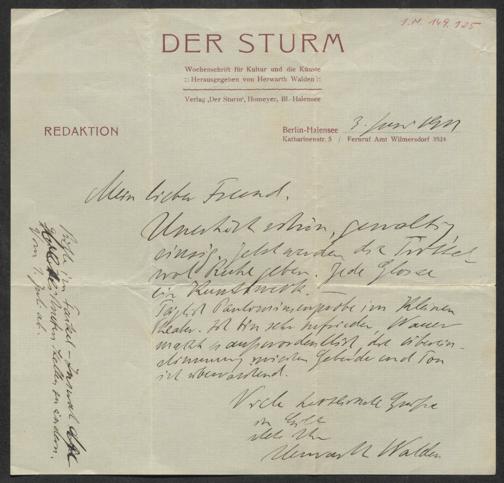 I.N. 149.125
DER STURM
Wochenschrift für Kultur und die Künste
:: Herausgegeben von Herwarth Walden ::
Verlag „Der Sturm“, Homeyer, Bl.-Halensee
REDAKTION
Berlin-Halensee 3. Juni 1911
Katharinenstr. 5 / Fernruf Amt Wilmersdorf 3524
Mein lieber Freund.
Unerhört schön, gewaltig
einzig, jetzt werden die Trottel
wol Ruhe geben. Jede Glosse
ein Kunstwerk.
Täglich im Kleinen
Theater. Ich bin sehr zufrieden,
macht es ausserordentlich, die Überein-
stimmung zwischen Gebärde und Ton
ist überraschend.
Viele herzlichste Grüsse
in Eile
stets Ihr
Herwarth Walden
Bitte im Inserat
zu ändern.
vom 1. Juli ab.